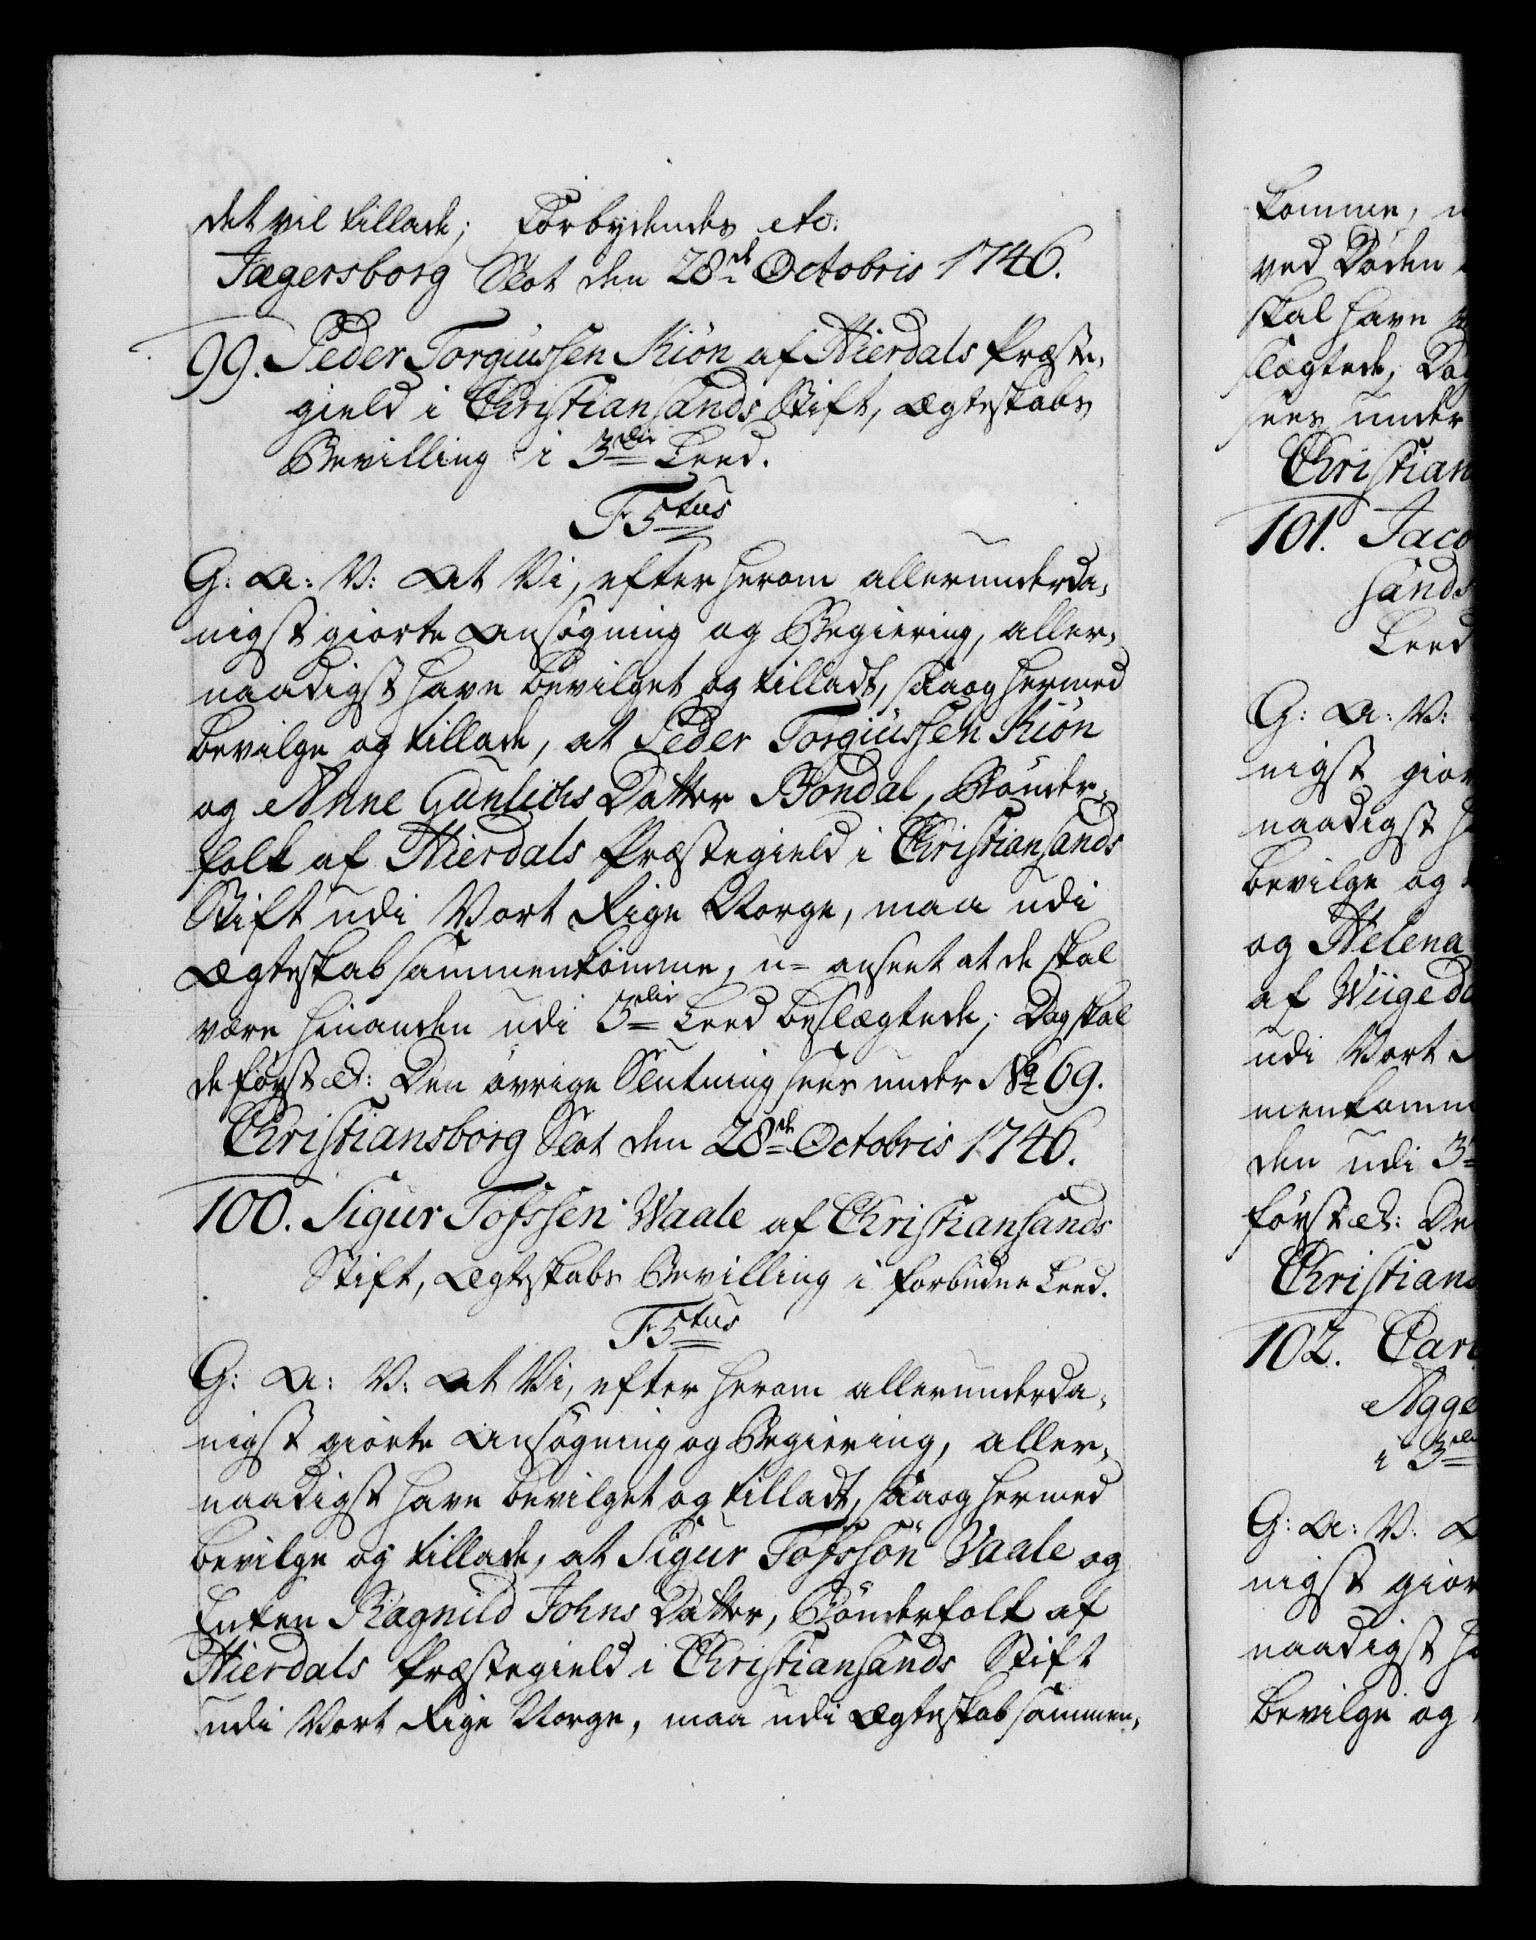 det vil tillade; Forbydendes etc:
Jægersborg Slot den 28de Octobris 1746.
99. Peder Torgiussen Kiön af Hierdals Præste-
gield i Christiansands Stift, Ægteskabs
Bevilling i 3die Leed.
F5tus
G: A: V: At Vi, efter herom allerunderda-
nigst giorte Ansøgning og Begiering, aller-
naadigst have bevilget og tilladt, saa og hermed
bevilge og tillade, at Peder Torgiussen Kiön
og Anne Gunlichs Datter Bondal, Bønder-
folk af Hierdals Præstegield i Christiansands
Stift udi Vort Rige Norge, maa udi
Ægteskab sammenkomme, u- anseet at de skal
være hinanden udi 3die Leed beslægtede; Dog skal
de först etc: Den övrige Slutning sees under No 69.
Christiansborg Slot den 28de Octobris 1746.
100. Sigur Tofssen Waale af Christiansands
Stift, Ægteskabs Bevilling i forbudne Leed.
F5tus
G: A: V: At Vi, efter herom allerunderda-
nigst giorte Ansøgning og Begiering, aller-
naadigst have bevilget og tilladt, saa og hermed
bevilge og tillade, at Sigur Tofssön Vaale og
Enken Ragnild Johns Datter, Bønderfolk af
Hierdals Præstegield i Christiansands Stift
udi Vort Rige Norge, maa udi Ægteskab sammen-
komme,
ved Döden
skal have
slægtede, Dog
sees under
Christian
101. Jaco
sands
Leed
G: A: V:
nigst gior
naadigst
bevilge og
og Helena
af Wiige
udi Vort
menkomm
den udi 3
först etc: De
Christians
102. Car
Agge
i 3die
G: A: V:
nigst gior
naadigst
bevilge og